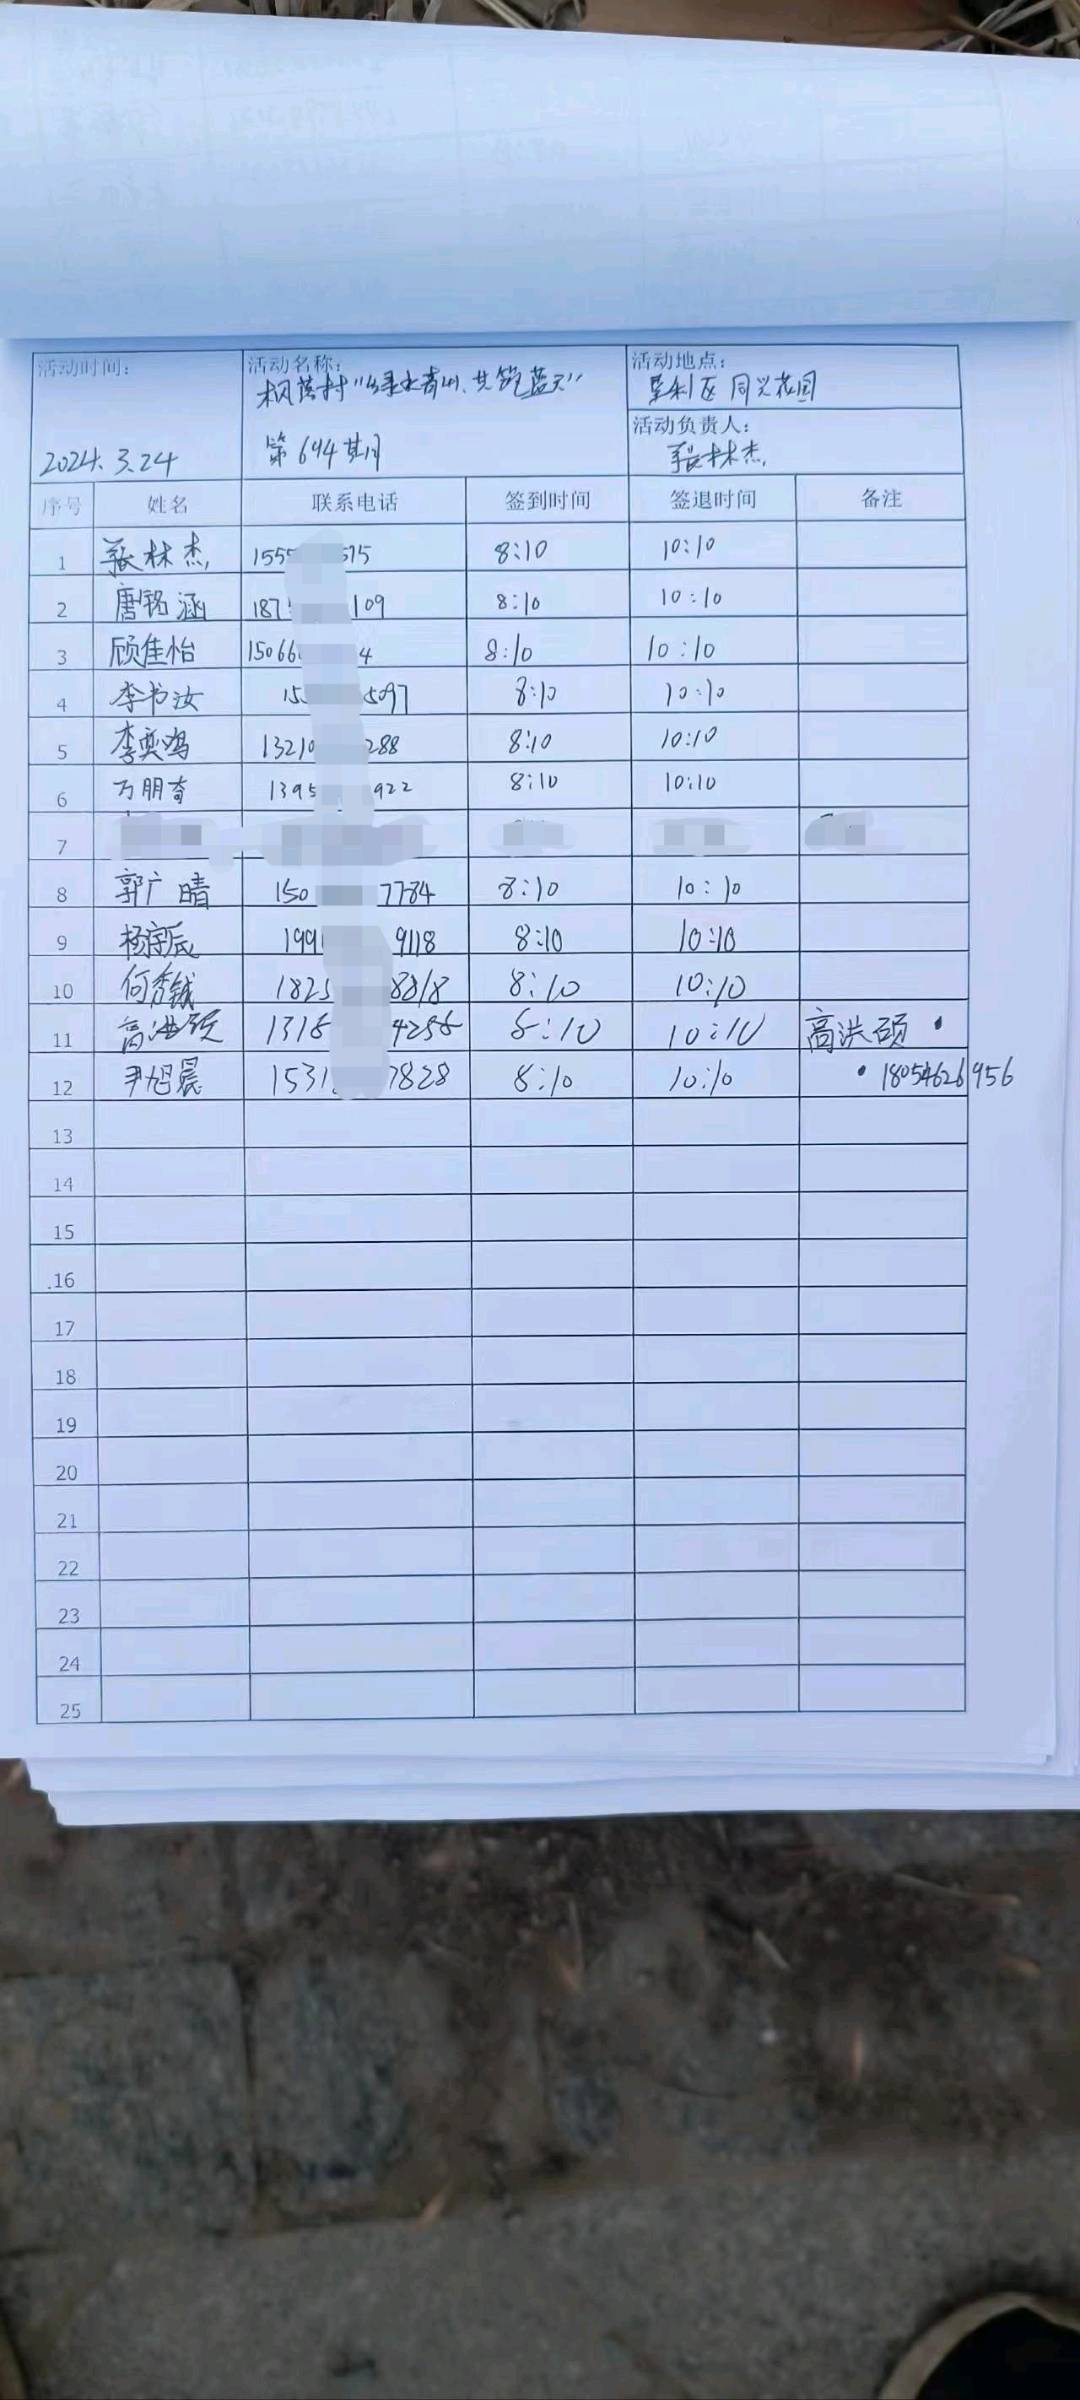 活动时间: 活动名称: 活动地点:
枫落村“绿水青山、共筑蓝天” 垦利区 同兴花园
活动负责人:
2024.3.24 第694期 张林杰
序号 姓名 联系电话 签到时间 签退时间 备注
1 张林杰 155 575 8:10 10:10
2 唐铭涵 187 109 8:10 10:10
3 顾佳怡 1506 4 8:10 10:10
4 李书汝 15 5097 8:10 10:10
5 李奕鸿 1321 288 8:10 10:10
6 万朋奇 1395 922 8:10 10:10
7
8 郭广晴 150 7784 8:10 10:10
9 杨宗辰 199 9118 8:10 10:10
10 何秀钺 1825 8818 8:10 10:10
11 高洪硕 1318 4258 8:10 10:10 高洪硕
12 尹旭晨 1531 7828 8:10 10:10 18054626956
13
14
15
16
17
18
19
20
21
22
23
24
25